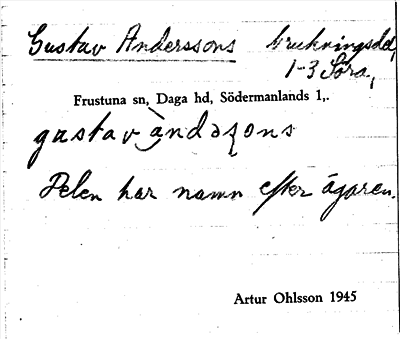 Gustav Anderssons brukningsdel,
1-3 Söra,
Frustuna sn, Daga hd, Södermanlands l,.
gustav àndəʂons
Delen har namn efter ägaren.
Artur Ohlsson 1945